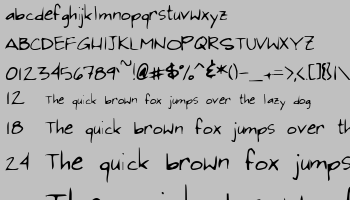 abcdefghijklmnopqrstuvwxyz
ABCDEFGHIJKLMNOPQRSTUVWXYZ
0123456789~!@#$%^&*()-_+=>,<.[]{}\
12 The quick brown fox jumps over the lazy dog
18 The quick brown fox jumps over
24 The quick brown fox jumps